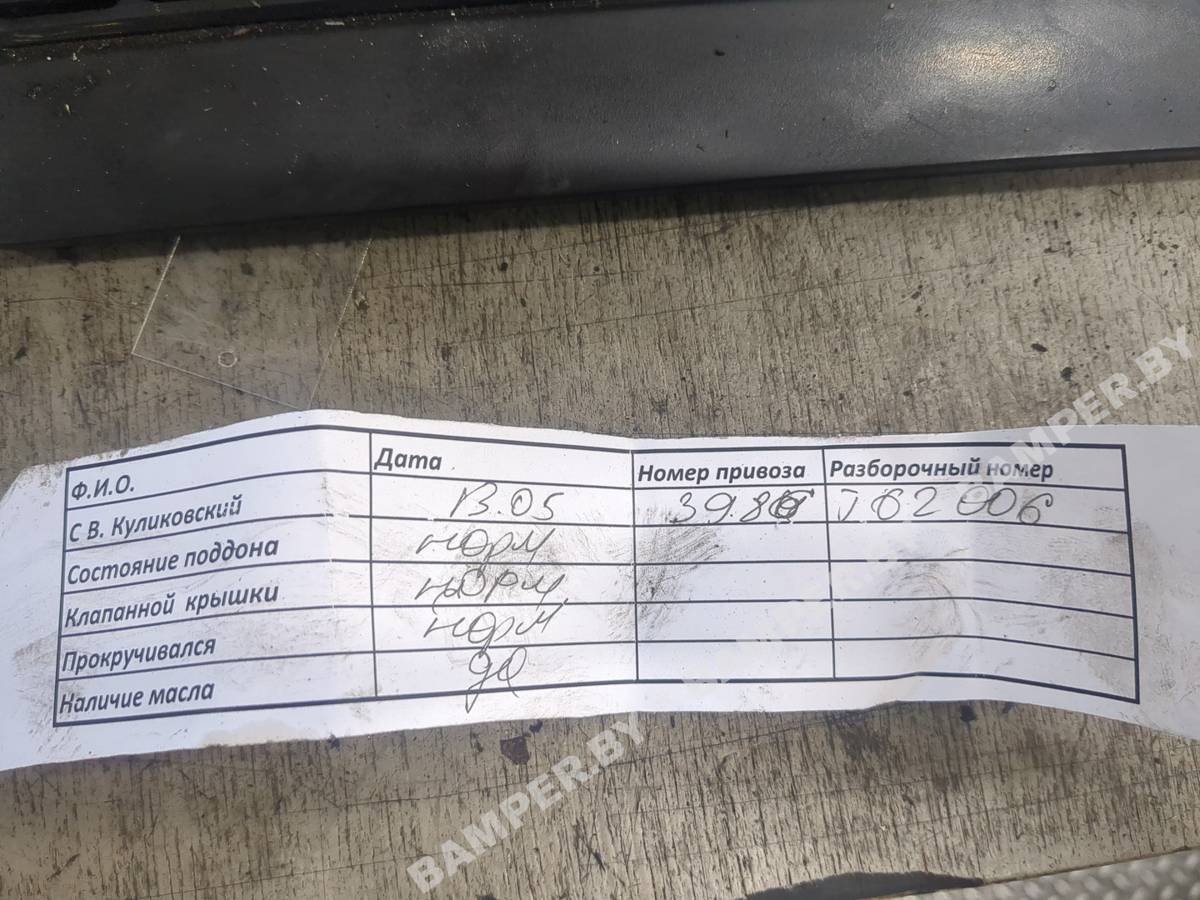 Ф.И.О. Дата Номер привоза Разборочный номер
С В. Куликовский 13.05 J62006
Состояние поддона норм
Клапанной крышки норм
Прокручивался норм
Наличие масла да
BAMPER.BY
BAMPER.BY
BAMPER.BY